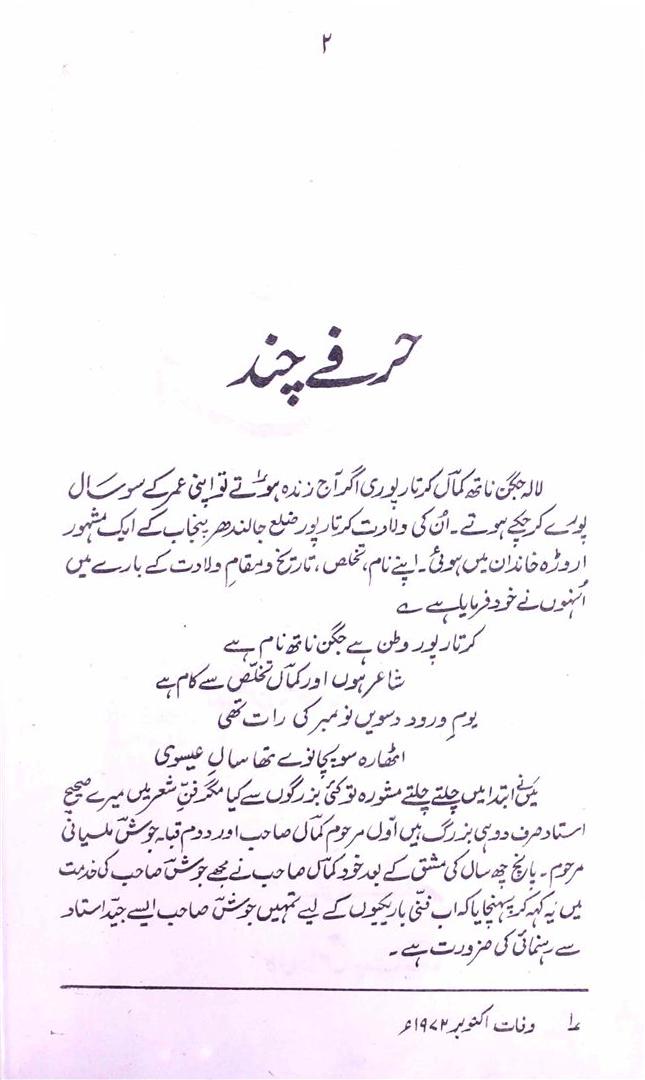 ۲
حرفے چند
لالہ جگن ناتھ کمالؔ کرتارپوری اگر آج زندہ ہوتے۱ تو اپنی عمر کے سو سال
پورے کر چکے ہوتے۔ اُن کی ولادت کرتارپور ضلع جالندھر پنجاب کے ایک مشہور
اروڑہ خاندان میں ہوئی۔ اپنے نام، تخلص، تاریخ و مقامِ ولادت کے بارے میں
اُنہوں نے خود فرمایا ہے ؎
کرتارپور وطن ہے جگن ناتھ نام ہے
شاعر ہوں اور کمالؔ تخلّص سے کام ہے
یومِ ورود دسویں نومبر کی رات تھی
اٹھارہ سو پچانوے تھا سالِ عیسوی
میں نے ابتدا میں چلتے چلتے مشورہ تو کئی بزرگوں سے کیا مگر فنِّ شعر میں میرے صحیح
استاد صرف دو ہی بزرگ ہیں اوّل مرحوم کمالؔ صاحب اور دوم قبلہ جوشؔ ملسیانی
مرحوم۔ پانچ چھ سال کی مشق کے بعد خود کمالؔ صاحب نے مجھے جوشؔ صاحب کی خدمت
میں یہ کہہ کر پہنچایا کہ اب فنّی باریکیوں کے لیے تمہیں جوشؔ صاحب ایسے جیّد استاد
سے رہنمائی کی ضرورت ہے۔
۱؎ وفات اکتوبر ۱۹۷۲ء